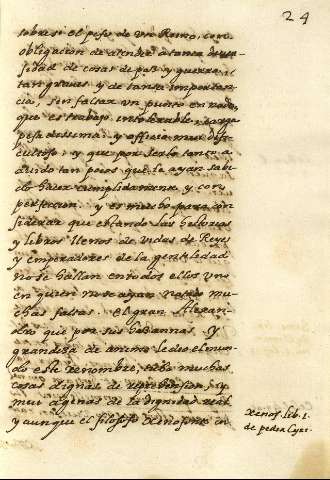 24
sobre si el peso de un Reyno, con
obligacion de atender a tanta diuer-
sidad de cosas de paz y guerra,
tan graues y de tanta importan-
cia, sin faltar un punto en nada,
que es trabajo intolerable, carga
pesadissima, y officio muy difi-
cultoso, y que por serlo tanto a
auido tan pocos que le ayan sabi-
do hazer cumplidamente y con
perfeccion. y es mucho para con-
siderar que estando las historias
y libros llenos de vidas de Reyes
y emperadores de la gentilidad
no se hallan en todos ellos uno
en quien no se ayan notado mu-
chas faltas. el gran Alexan-
dro que por sus hazannas y
grandeza de animo le dio el mun-
do este renombre, tubo muchas
cosas dignas de reprehension, y
muy agenas de la dignidad real
y aunque el filosofo Xenofonte en
Xenof. lib. 1.
de pedia Cyri.